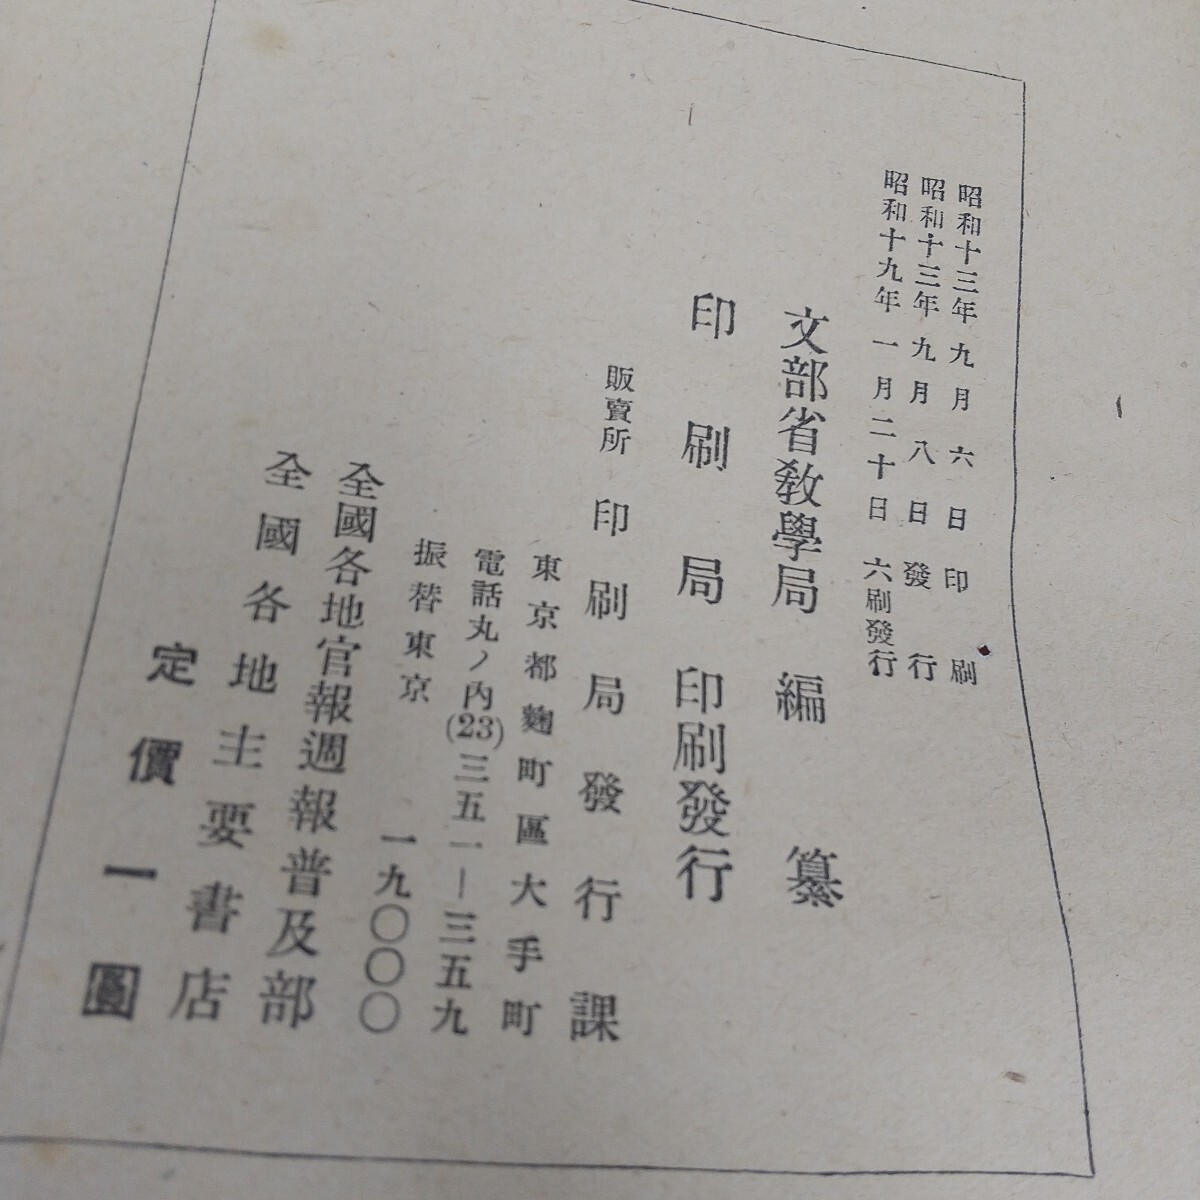 昭和十三年九月六日印刷
昭和十三年九月八日發行
昭和十九年一月二十日六刷發行
文部省敎學局編纂
印刷局印刷發行
販賣所 印刷局發行課
東京都麴町區大手町
電話丸ノ內(23)三五一―三五九
振替東京一九〇〇〇〇
全國各地官報週報普及部
全國各地主要書店
定價一圓